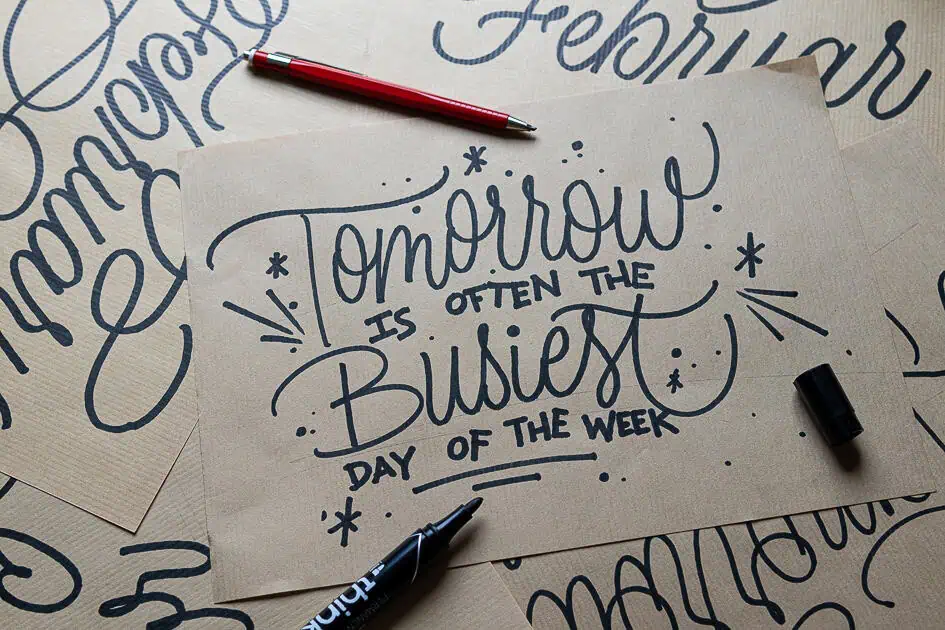 Februar
Tomorrow
IS OFTEN THE
Busiest
DAY OF THE WEEK
think